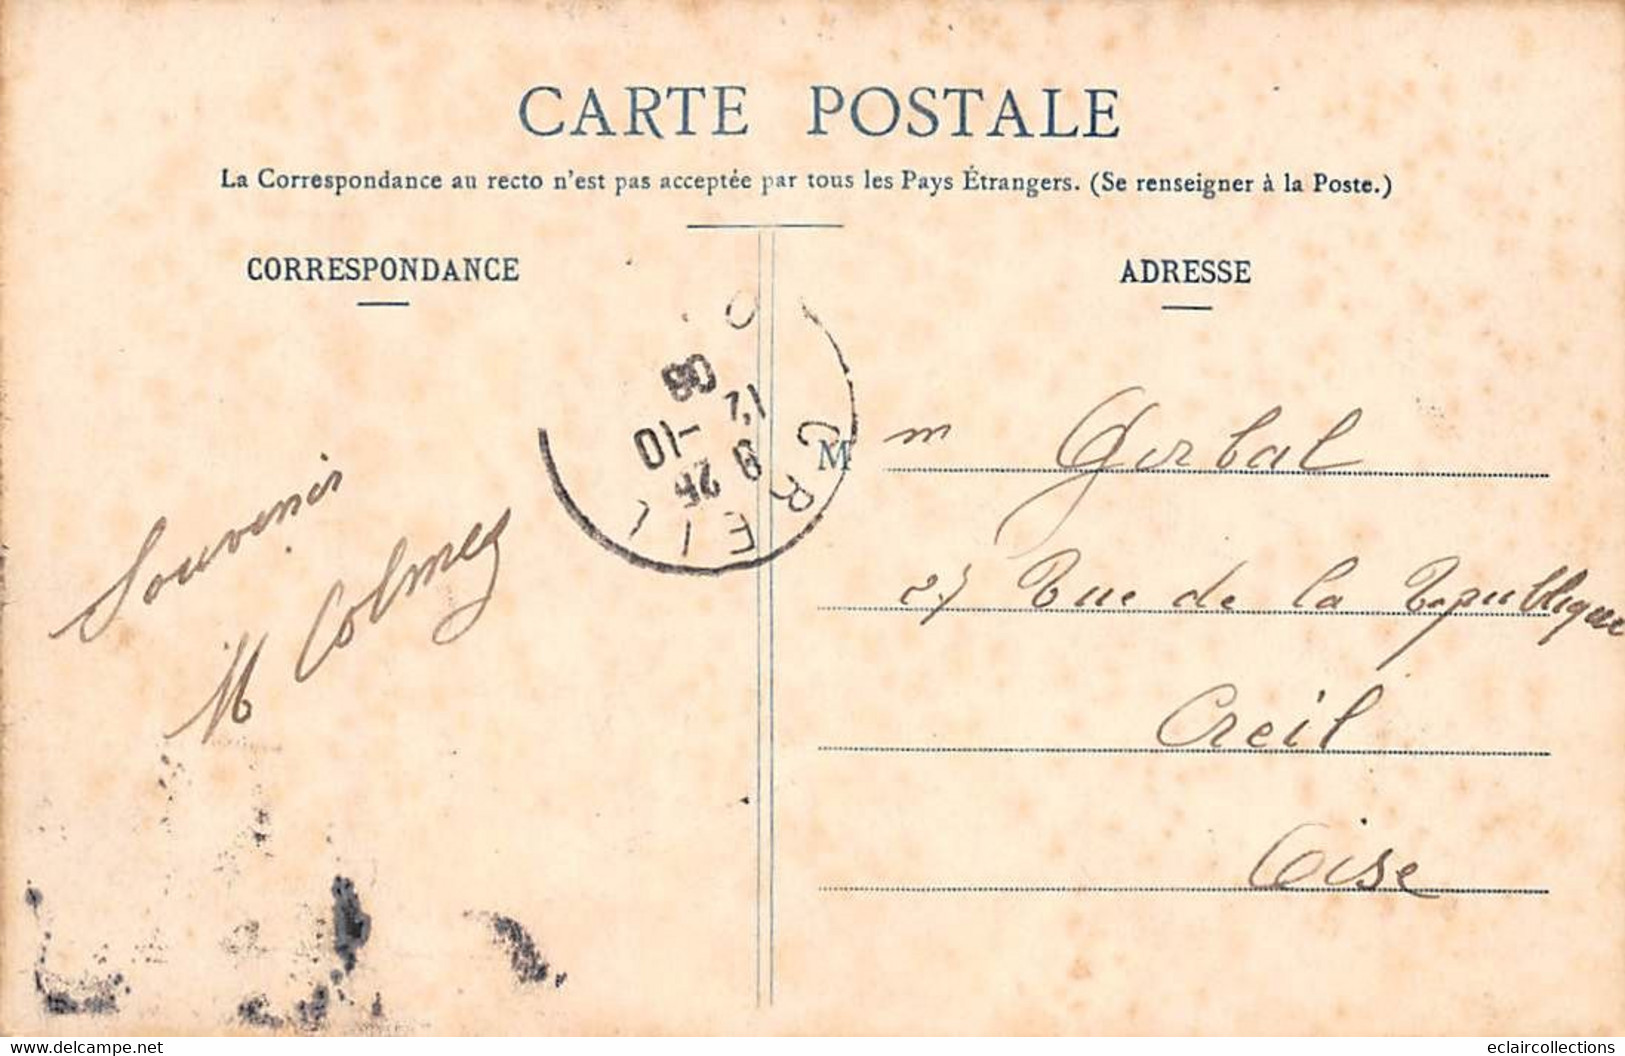 CARTE POSTALE
La Correspondance au recto n'est pas acceptée par tous les Pays Étrangers. (Se renseigner à la Poste.)
CORRESPONDANCE
ADRESSE
CREIL
9 25 -10
08
Souvenir
M
M
m Gorbal
27 Rue de la République
Creil
Oise
www.delcampe.net
eclaircollections